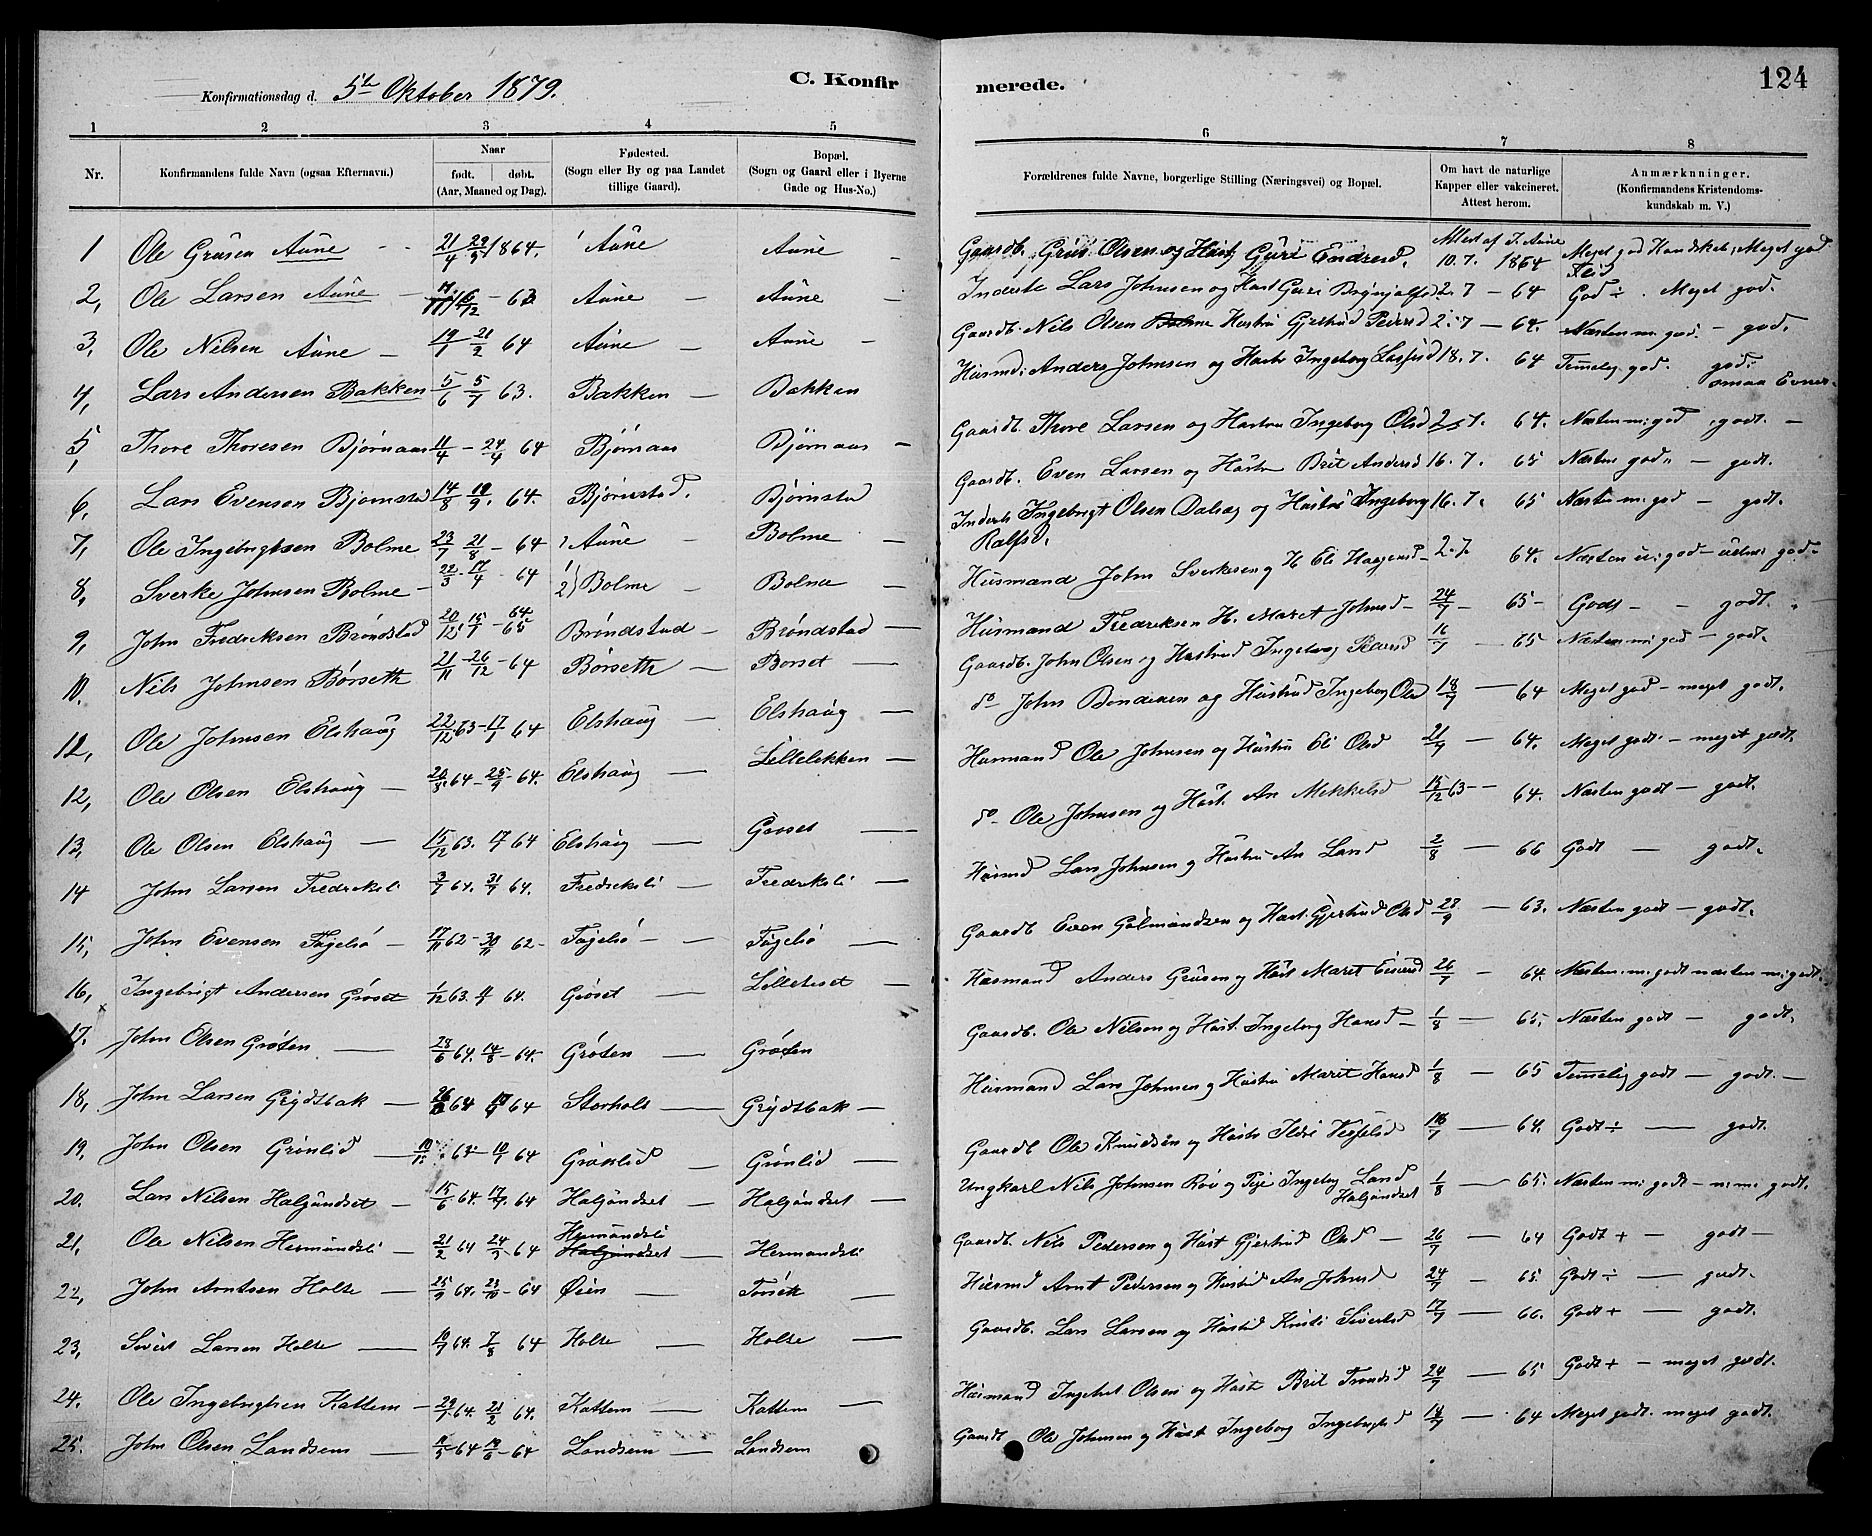 124
C. Konfirmerede.
Konfirmationsdag d. 5te Oktober 1879.
1 2 3 4 5 6 7 8
Nr. Konfirmandens fulde Navn (ogsaa Efternavn.) Naar født. døbt. (Aar, Maaned og Dag). Fødested. (Sogn eller By og paa Landet tillige Gaard). Bopæl. (Sogn og Gaard eller i Byerne Gade og Hus-No.) Forældrenes fulde Navne, borgerlige Stilling (Næringsvei) og Bopæl. Om havt de naturlige Kapper eller vakcineret. Attest herom. Anmærkninger. (Konfirmandens Kristendomskundskab m. V.)
1 Ole Grusen Aune 21/4 29/5 1864. Aune Aune Gaardb. Grus Olsen og Hust. Guri Endresd. Attest af J. Aune 10. 7. 1864 Meget god Kundskab, Meget god Flid
2, Ole Larsen Aune 6/12 - 63 Aune Aune Inderste Lars Johnsen og Hust Guri 2. 7 - 64 God ÷. Meget god.
3, Ole Nilsen Aune 19/1 - 21/2 64 Aune Aune Gaardb. Nils Olsen Hustru Gjertrud Pedersd 2. 7 - 64. Næsten m. god. - god.
4, Lars Andersen Bakken 5/6 - 5/7 63. Bakken Bakken Husmd: Anders Johnsen og Hustr Ingeborg 18. 7. 64 Temelig god. god. smaa Evner.
5, Thore Thoresen Bjørnaas 11/4 - 24/4 64 Bjørnaas Bjørnaas Gaardb. Thore Larsen og Hustru Ingeborg Olsd 64. Næsten m: god. godt. -
6, Lars Evensen Bjørnstad 14/8 18/9. 64. Bjørnstad. Bjørnstad Gaardb. Even Larsen og Hustr Brit Andersd 16. 7. 65 Næsten god. - godt.
7, Ole Ingebrigtsen Bolme 23/7 21/8 - 64 Aune Bolme Inderste Ingebrigt Olsen Dalseg og Hustru Ingeborg Ralfsd. 16. 7. 65 Næsten m. god - godt.
8, Sverke Johnsen Bolme 22/3 - 17/4 - 64 2) Bolme Bolme Husmand John Sverkesen og H. Eli Haagensd 2. 7. 64. Næsten m: god god.
9, John Fredriksen Brøndstad 20/12 - 15/1 - 64 65 Brøndstad Brøndstad Husmand Fredriksen H. Maret Johnsd 24/7 - 65 - Godt - - godt.
10. Nils Johnsen Børseth 21/11 - 26/12 - 64 Børseth Børset Gaardb. John Olsen og Hustrud Ingeborg 16/7 - 65 Næsten m: god - godt.
12, Ole Johnsen Elshaug 22/12 63 - 17/1 64 Elshaug Elshaug do John og Hustrud Ingeborg Olsd 18/7 - 64 Meget god - meget godt.
12, Ole Olsen Elshaug 64 - 25/9 - 64. Elshaug Lillelökken Husmand Ole Johnsen og Hustru Eli Olsd 21/9 - 64. Meget godt - meget godt.
13, Ole Olsen Elshaug 15/12 63. 17/1 64 Elshaug do Ole Johnsen og Hust. An Mikkelsd 15/12 63 - 64. Næsten godt - godt.
14 John Larsen Fredriksli 3/7 64. 31/7 64. Fredriksli Fredriksli Husmd Lars Johnsen og Hustru An Larsd 2/8 - 66 Godt - godt.
15, John Evensen Fagelsø 17/11 62 - 30/11 62 - Fagelsø Fagelsø Gaardb. Even og Hust. Gjertrud Olsd 28/9 - 63. Næsten godt - godt.
16, Ingebrigt Andersen Grøset 1/12 63. 64. Grøset Husmand Anders Grusen og Hust Maret 26/7 - 64. Næsten m. godt næsten m: godt.
17. John Olsen Grøten 28/6 64. 14/8 - 64. Grøten Grøten Gaardb. Ole Nilsen og Hust. Ingeborg Hansd - 1/8 - 65. Næsten godt - godt.
18, John Larsen Grydtbak 64 64 Storholt Grydtbak Husmand Lars Johnsen og Hustru Marit Hansd 1/8 - 65 Temelig godt - godt. -
19, John Olsen Grønlid 64 Grønlid Grønlid Gaardb Ole Knudsen og Hustr Ildri 16/7 - 64. Godt ÷ - godt.
20. Lars Nilsen Halgundset 15/6 64. 17/7 64 Halgundset Halgundset Ungkarl Nils Johnsen Røv og Pige Ingebg Larsd Halgundset 1/8 - 65. Næsten m: godt - n: m: godt.
21, Ole Nilsen Hermundsli 21/2 64 24/3 - 64 Hermundsli Halgundset Hermundsli Gaardb. Nils Pedersen og Hust Gjertrud Olsd - 26/7 - 64 Godt + - godt -
22, John Arntsen Holte 25/9 64. 23/10 - 64 Øien Torset Husmd Arnt Pedersen og Hustrud An Johnsd 24/7 - 65. Godt ÷ - godt.
23, Sivert Larsen Holte 10/7 64. 7/8 64 Holte Holte Gaardb. Lars Larsen og Hustrud Kristi Sivertsd 17/7 - 66. Godt + - godt.
24. Ole Ingebrigtsen Kattem 29/1 64. 21/2 64. Kattem Kattem Husmand Ingebret Olsen og Hust Brit Trondsd 24/7 - 65 Godt + - meget godt.
25. John Olsen Landsem 64 - 64 Landsem Landsem Gaardb Ole Johnsen og Hust Ingeborg Ingebrigtsd 18/7 - 64 Meget godt. meget godt.